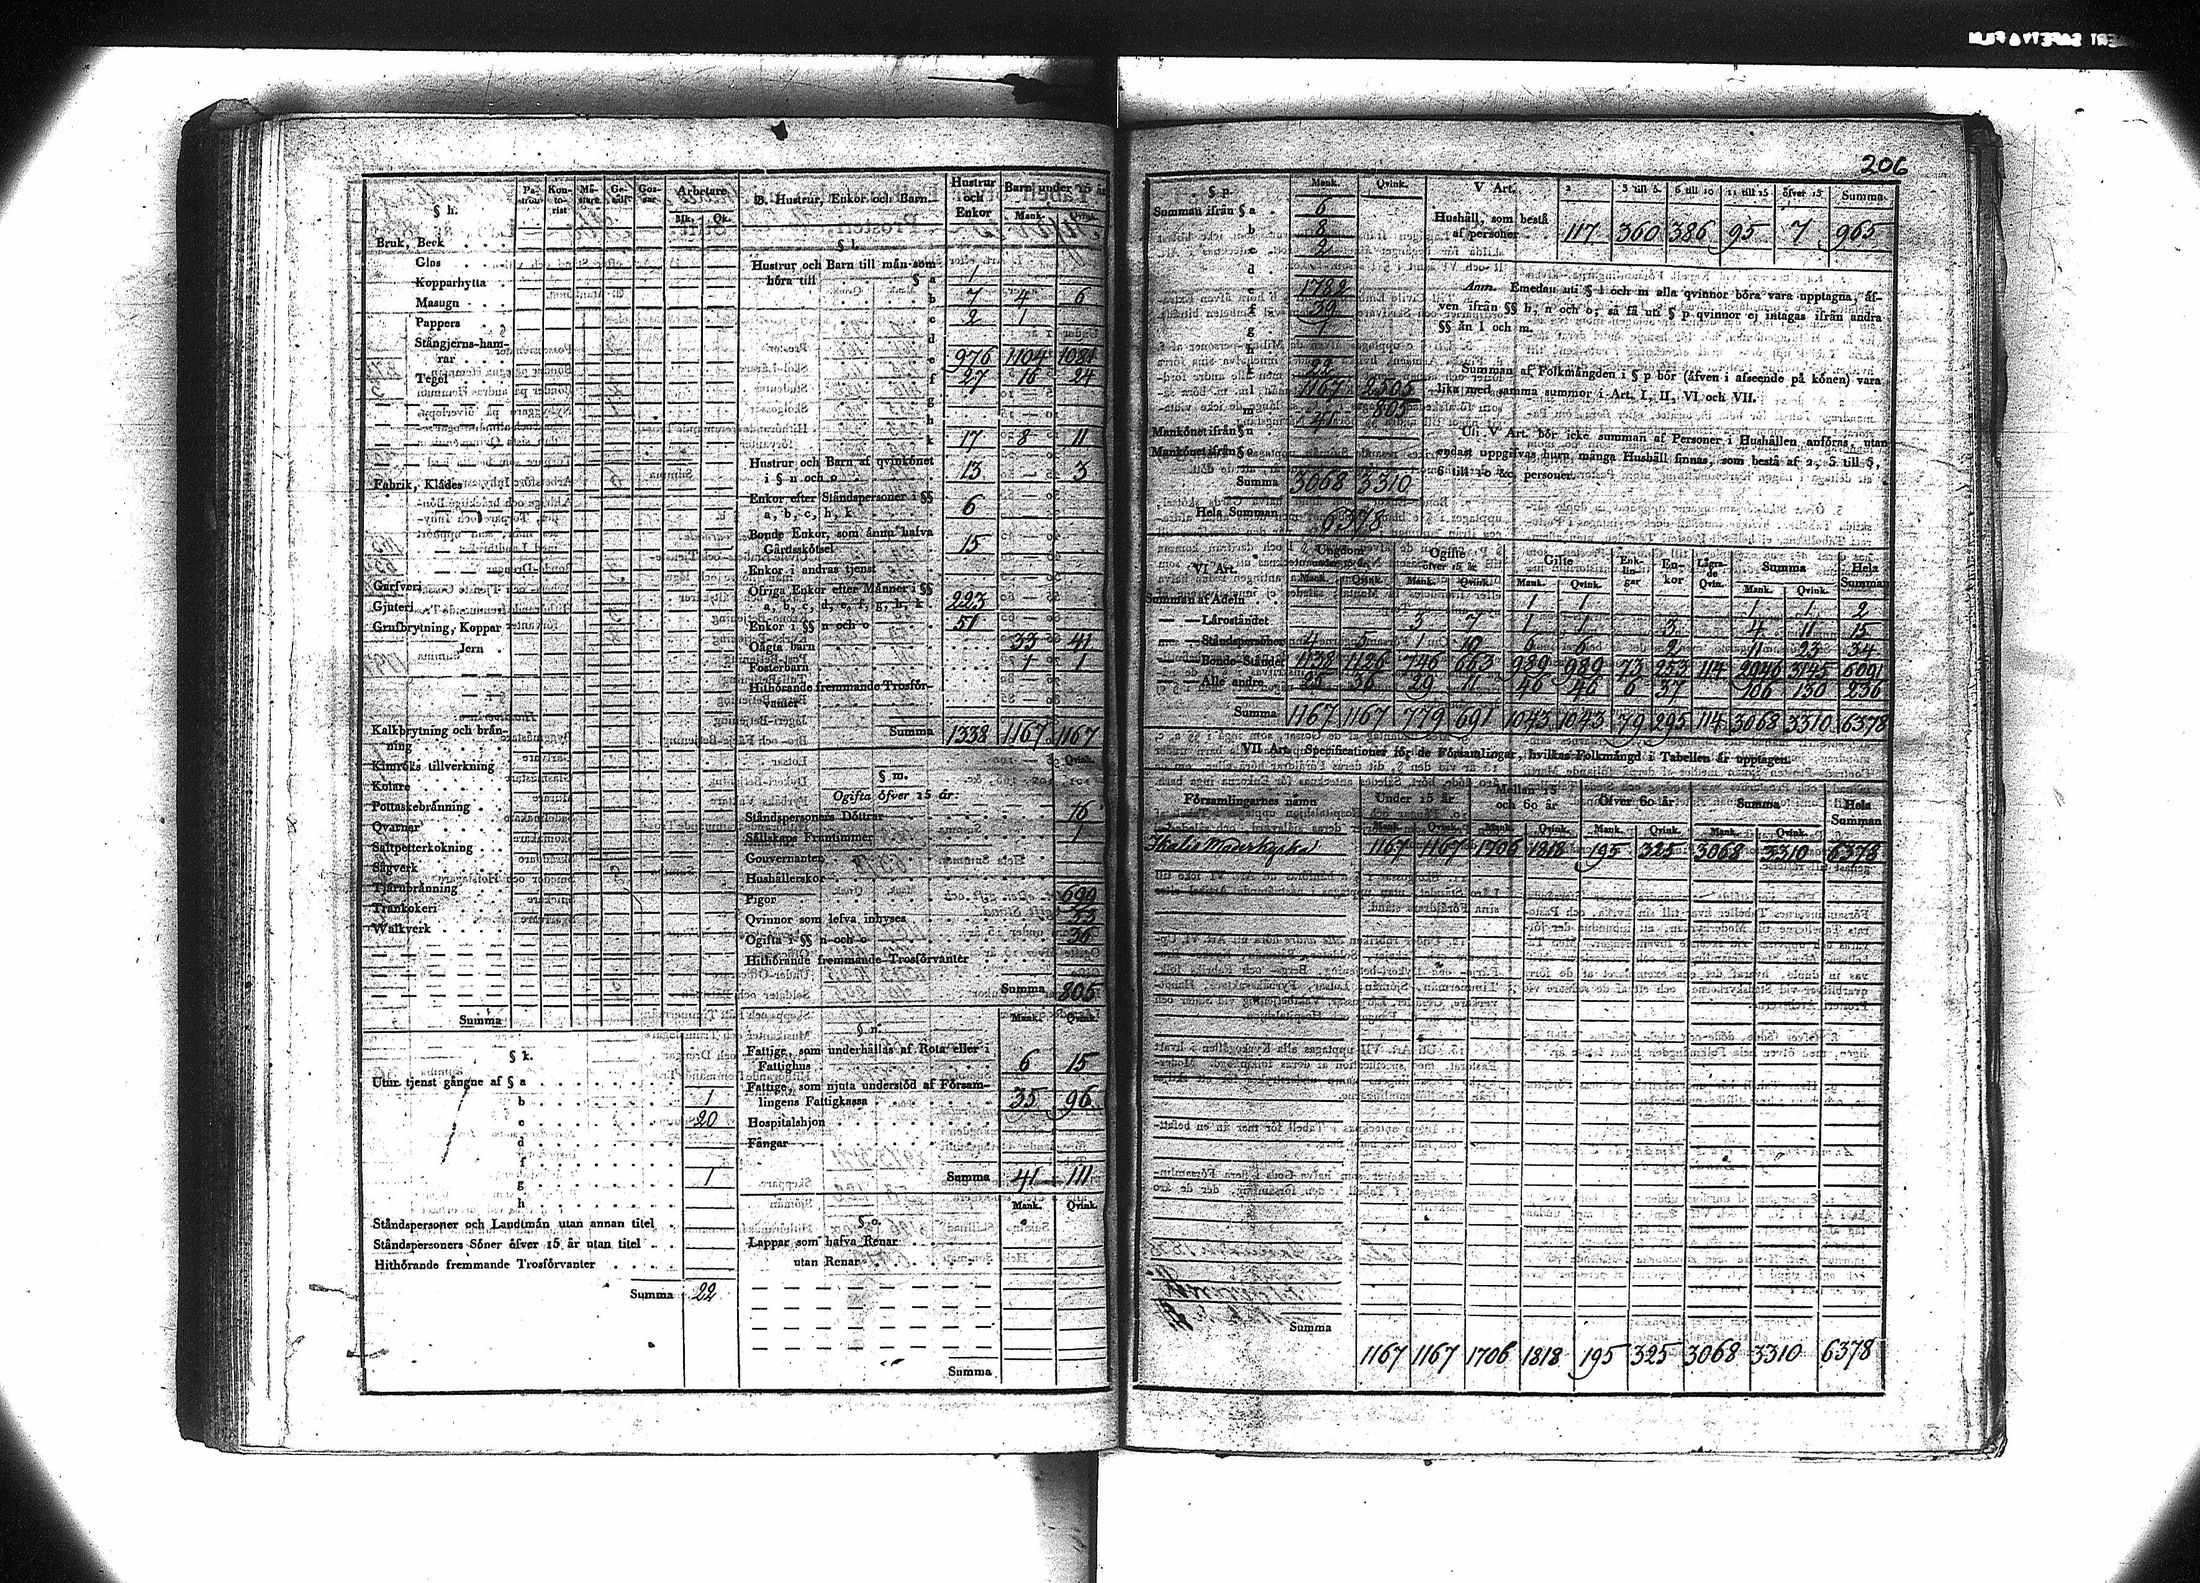 206
§ h.
Pa- tron
Kon- to- rist
Mä- stare
Ge- säll
Gos- sar
Arbetare
Mk. Qk.
Bruk, Beck
Glas
Kopparhytta
Masugn
Pappers
Stångjerns-ham-
rar
Tegel
Fabrik, Klädes
Garfveri
Gjuteri
Grufbrytning, Koppar
Jern
Kalkbrytning och brän-
ning
Kimröks tillverkning
Kolare
Pottaskebränning
Qvarnar
Saltpetterkokning
Sågverk
Tjärubränning
Trankokeri
Walkverk
Summa
§ k.
Utur tjenst gångne af § a
b 1
c 20
d
f
g 1
h
Ståndspersoner och Landtmän utan annan titel
Ståndspersoners Söner öfver 15 år utan titel
Hithörande fremmande Trosförvanter
Summa 22
B. Hustrur, Enkor och Barn.
Hustrur och Enkor
Barn under 15 år
Mank. Qvink.
§ l.
Hustrur och Barn till män som
höra till § a 1
b 7 4 6
c 2 1
d
e 976 1104 1081
f 27 16 24
g
h
k 17 8 11
Hustrur och Barn af qvinkönet
i § n och o 13 3
Enkor efter Ståndspersoner i §§
a, b, c, h, k 6
Bonde Enkor, som ännu hafva
Gårdsskötsel 15
Enkor i andras tjenst
Öfriga Enkor efter Männer i §§
a, b, c, d, e, f, g, h, k 223
Enkor i §§ n och o 51
Oägta barn 33 41
Fosterbarn 1 1
Hithörande fremmande Trosför-
vanter
Summa 1338 1167 1167
§ m.
Qvink.
Ogifta öfver 15 år:
Ståndspersoners Döttrar 16
Sällskaps Fruntimmer 1
Gouvernanter
Hushållerskor
Pigor 699
Qvinnor som lefva inhyses 53
Ogifta i §§ n och o 36
Hithörande fremmande Trosförvanter
Summa 805
§ n.
Mank. Qvink.
Fattige, som underhållas af Rota eller i
Fattighus 6 15
Fattige, som njuta understöd af Försam-
lingens Fattigkassa 35 96
Hospitalshjon
Fångar
Summa 41 111
Mank. Qvink.
§ o.
Lappar som hafva Renar
utan Renar
Summa
§ p. Mank. Qvink.
Summan ifrån § a 6
b 8
c 2
d
e 1782
f 39
g 1
h
k 22
l 1167 2505
m 805
Mankönet ifrån § n 41
Mankönet ifrån § o
Summa 3068 3310
Hela Summan 6378
V Art. 2 3 till 5. 6 till 10 11 till 15 öfver 15 Summa
Hushåll, som bestå
af personer 117 360 386 95 7 965
Anm. Emedan uti § l och m alla qvinnor böra vara upptagna, äf-
ven ifrån §§ h, n och o; så få uti § p qvinnor ej intagas ifrån andra
§§ än l och m.
Summan af Folkmängden i § p bör (äfven i afseende på könen) vara
lika med samma summor i Art. I, II, VI och VII.
Uti V Art. bör icke summan af Personer i Hushållen anföras, utan
endast uppgifvas huru många Hushåll finnas, som bestå af 2, 3 till 5,
6 till 10 &c. personer.
VI Art.
Ungdom under 15 år
Ogifte öfver 15 år
Gifte
Enk- lin- gar
En- kor
Lägra- de Qvin.
Summa
Hela Summan
Mank. Qvink. Mank. Qvink. Mank. Qvink. Mank. Qvink.
Summan af Adeln 1 1 1 1 2
— — Läroståndet 3 7 1 1 3 4 11 15
— — Ståndspersoner 4 5 1 10 6 6 2 11 23 34
— — Bonde-Ståndet 1138 1126 746 663 989 989 73 253 114 2946 3145 6091
— — Alle andre 25 36 29 11 46 46 6 37 106 130 236
Summa 1167 1167 779 691 1043 1043 79 295 114 3068 3310 6378
VII Art. Specificationer för de Församlingar, hvilkas Folkmängd i Tabellen är upptagen.
Församlingarnes namn
Under 15 år
Mellan 15 och 60 år
Öfver 60 år
Summa
Hela Summan
Mank. Qvink. Mank. Qvink. Mank. Qvink. Mank. Qvink.
Ikalis Moderkyrka 1167 1167 1706 1818 195 325 3068 3310 6378
Summa
1167 1167 1706 1818 195 325 3068 3310 6378